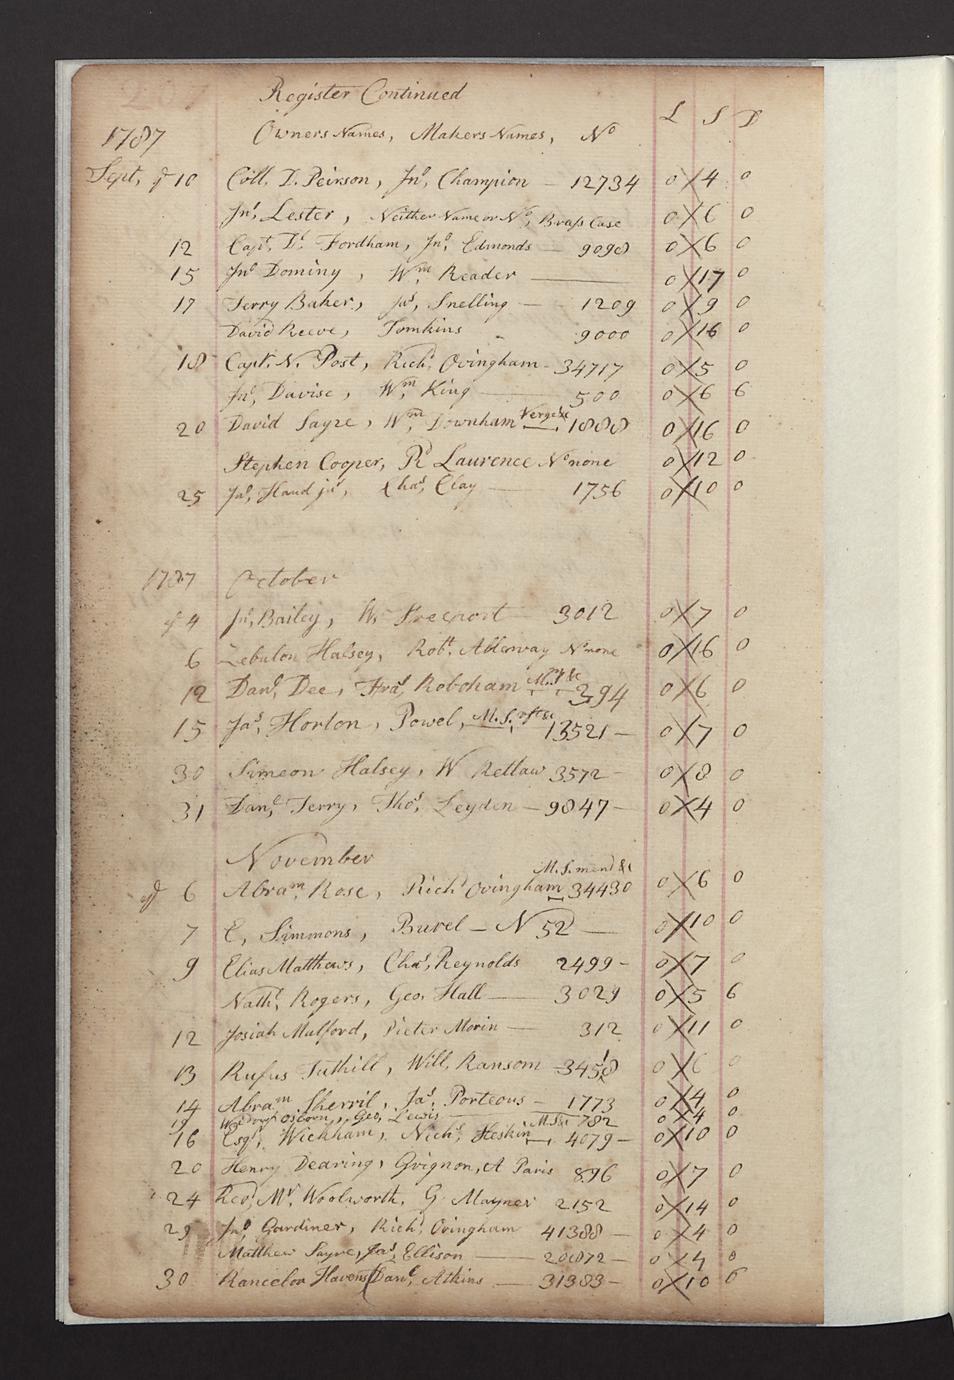 Register Continued
L S D
1787 Owners Names, Makers Names, No
Sept, ye 10 Coll. D. Peirson, Jno, Champion — 12734 0 4 0
Jnr, Lester, Neither Name or No, Brass Case 0 6 0
12 Capt, Dl. Fordham, Jno, Edmonds — 9098 0 6 0
15 Jno Dominy, Wm, Reader — 0 17 0
17 Terry Baker, Jas, Snelling — 1209 0 9 0
David Reeve, Tomkins 9000 0 16 0
18 Capt. N. Post, Richd, Ovingham - 34717 0 5 0
Jno, Davise, Wm, King — 500 0 6 6
20 David Sayre, Wm, Downham 1888 0 16 0
Stephen Cooper, Rd Laurence No none 0 12 0
25 Jas, Hand jnr, Chas, Clay — 1756 0 10 0
1787 October
ye 4 Jnr, Bailey, W, Freeport 3012 0 7 0
6 Zebulon Halsey, Robt, No none 0 16 0
12 Danl, Dee, Fras, Roboham 294 0 6 0
15 Jas, Horton, Powel, 13521 — 0 7 0
30 Simeon Halsey, W Rettaw 3572 - 0 8 0
31 Danl, Terry, Thos, Leyden — 9847 — 0 4 0
November
M.S. mend &c
ye 6 Abram, Rose, Richd Ovingham 34430 0 6 0
7 E, Simmons, Burel — N 52 — 0 10 0
9 Elias Matthews, Chas, Reynolds 2499 - 0 7 0
Nathl, Rogers, Geo, Hall — 3029 0 5 6
12 Josiah Mulford, Pieter Morin — 312 0 11 0
13 Rufus Tuthill, Will, Ransom 3458 0 6 0
14 Abram Sherril, Jas, Porteous — 1773 0 4 0
15 Osborn, Geo, Lewis — 782 0 4 0
16 Esqr, Wickham, Nichs, Heskin 4079 — 0 10 0
20 Henry Dearing, Grignon, A Paris 896 0 7 0
24 Revd, Mr, Woolworth, G Maynes 2152 0 14 0
29 Jno, Gardiner, Richd, Ovingham 41388 — 0 4 0
Matthew Sayre, Jas, Ellison — 20872 — 0 4 0
30 Rancelor Havens Danl, Atkins — 31383 - 0 10 6